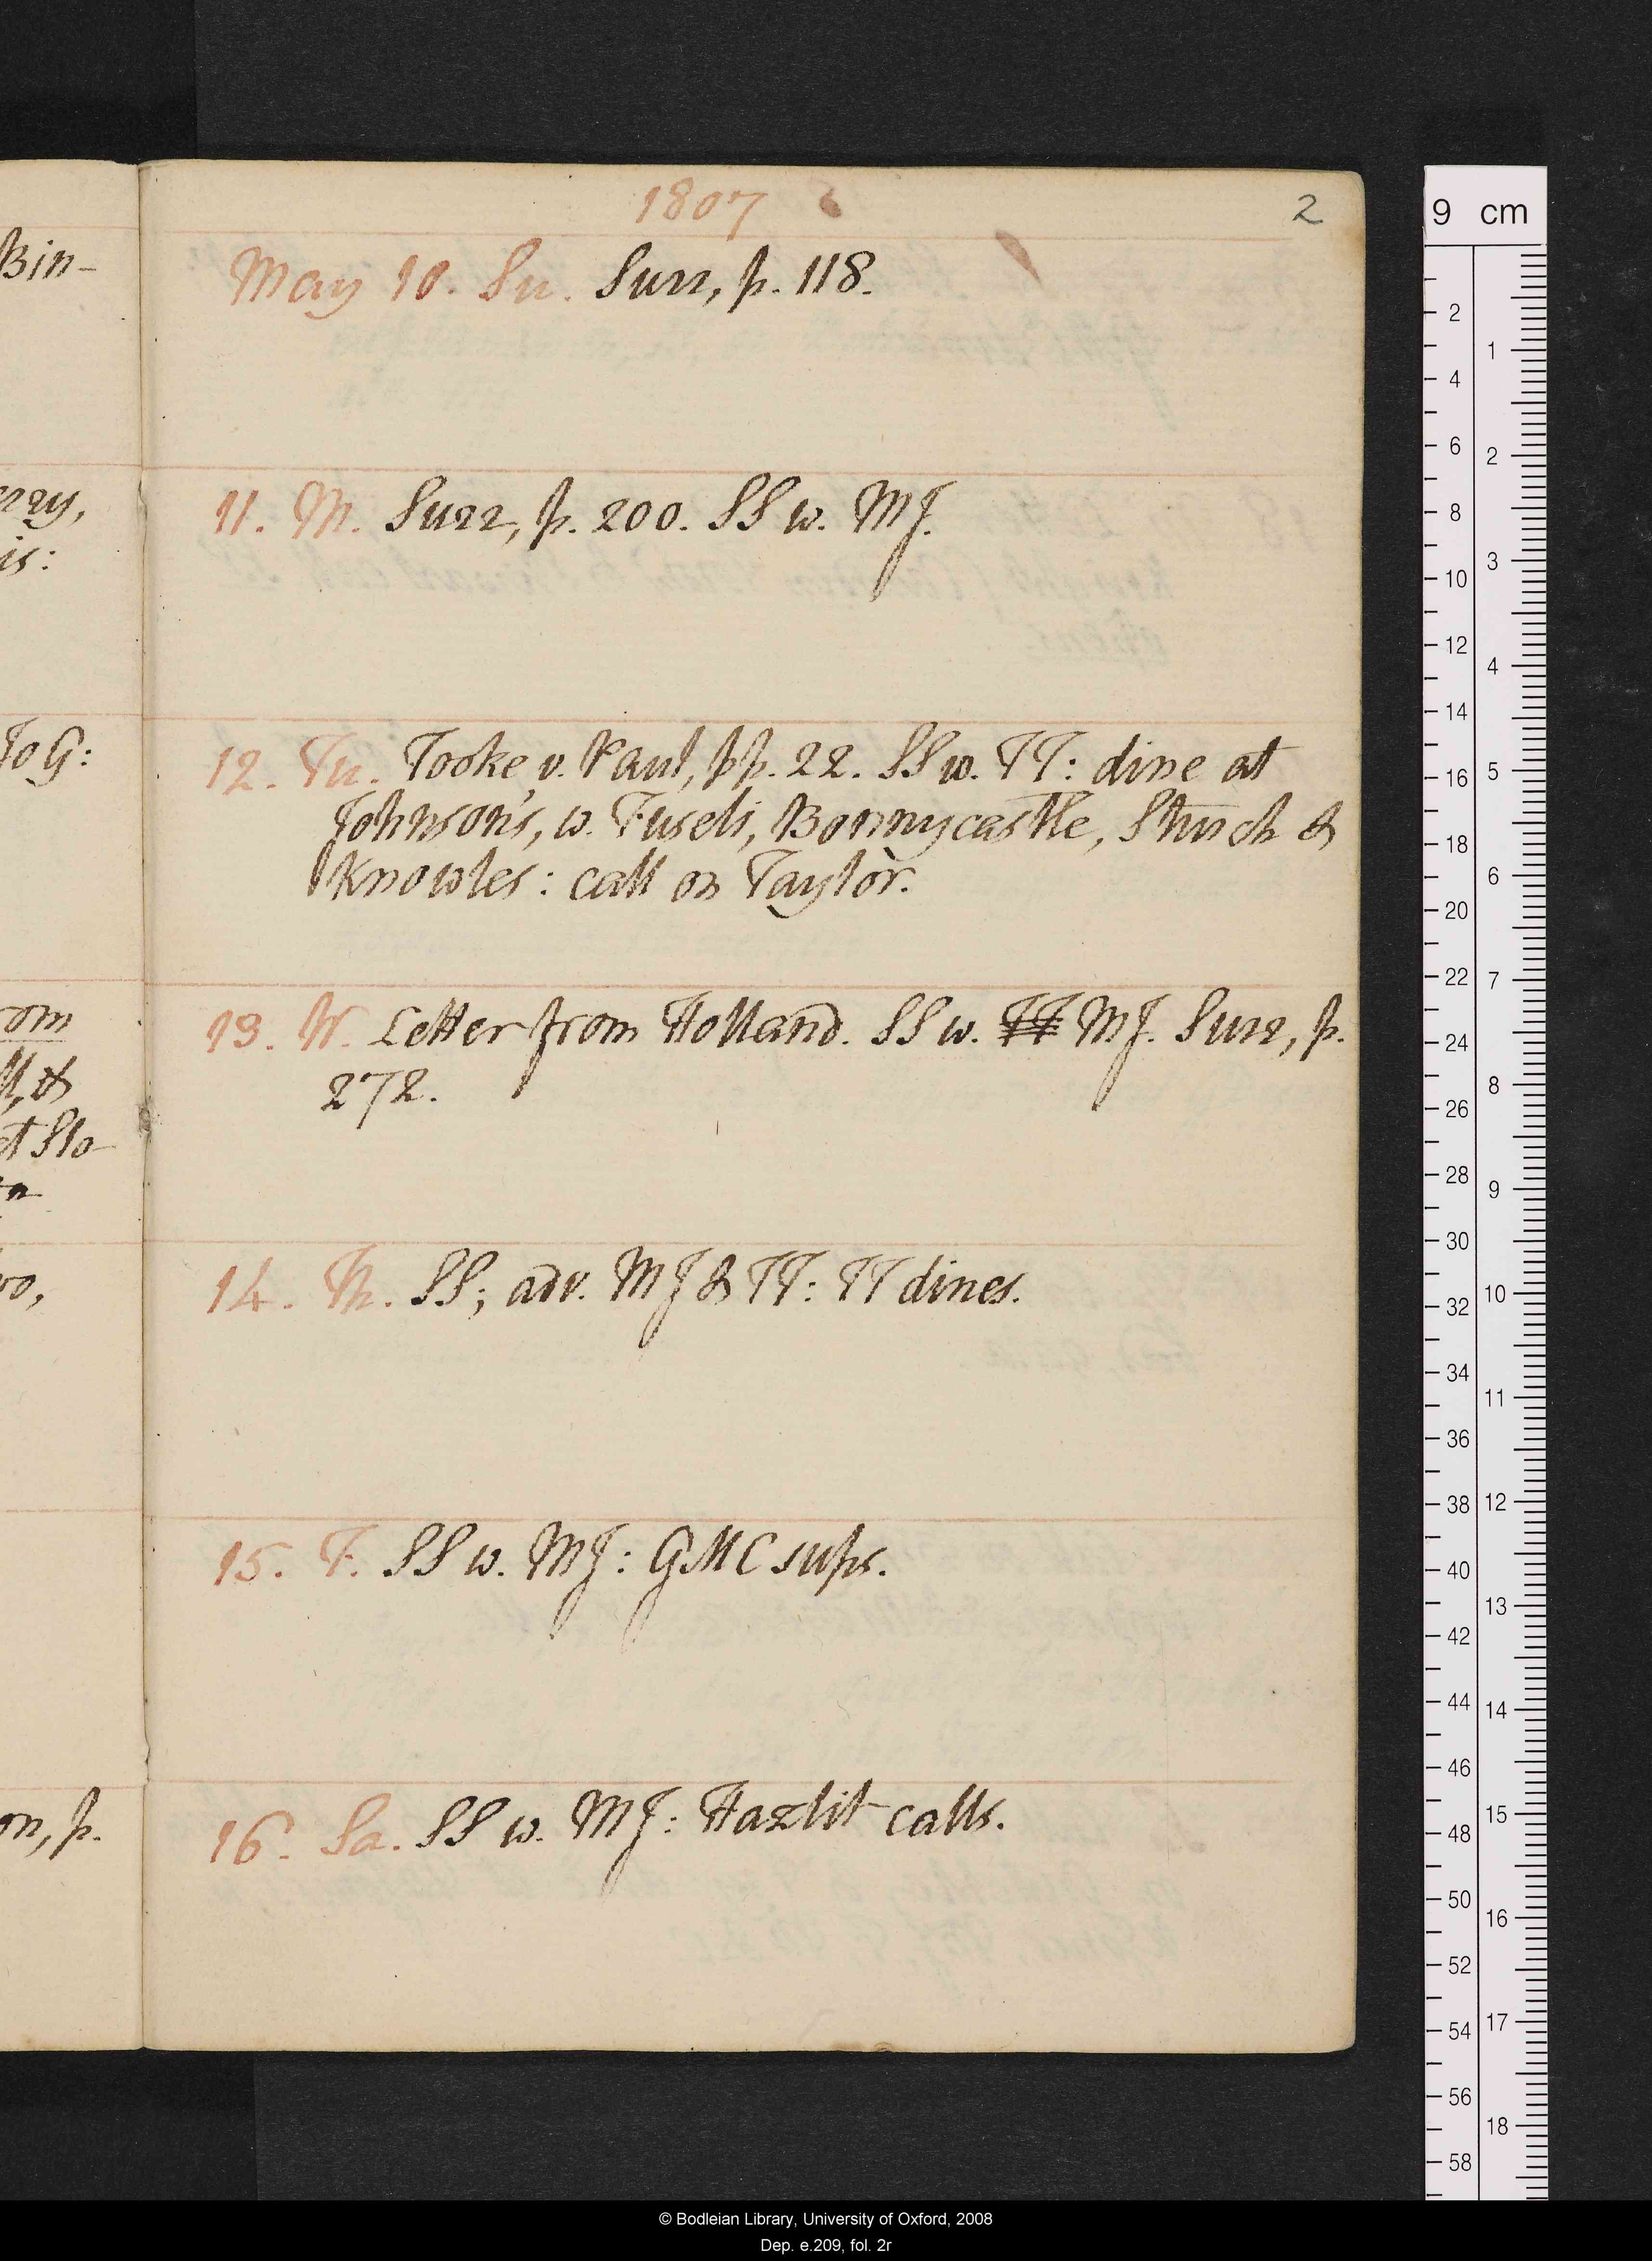 1807
2
May 10. Su. Surr, p. 118.
11. M. Surr, p. 200. SS w. MJ.
12. Tu. Tooke v. Paul, pp. 22. SS w. TT: dine at
Johnson's, w. Fuseli, Bonnycastle, Sturch &
Knowles: call on Taylor.
13. W. Letter from Holland. SS w. TT MJ. Surr, p.
272.
14. Th. SS; adv. MJ & TT: TT dines.
15. F. SS w. MJ: GMC sups.
16. Sa. SS w. MJ: Hazlit calls.
Bin-
is:
Jo G:
om
et Slo-
on, p.
9 cm
2
4
6
8
10
12
14
16
18
20
22
24
26
28
30
32
34
36
38
40
42
44
46
48
50
52
54
56
58
1
2
3
4
5
6
7
8
9
10
11
12
13
14
15
16
17
18
© Bodleian Library, University of Oxford, 2008
Dep. e.209, fol. 2r